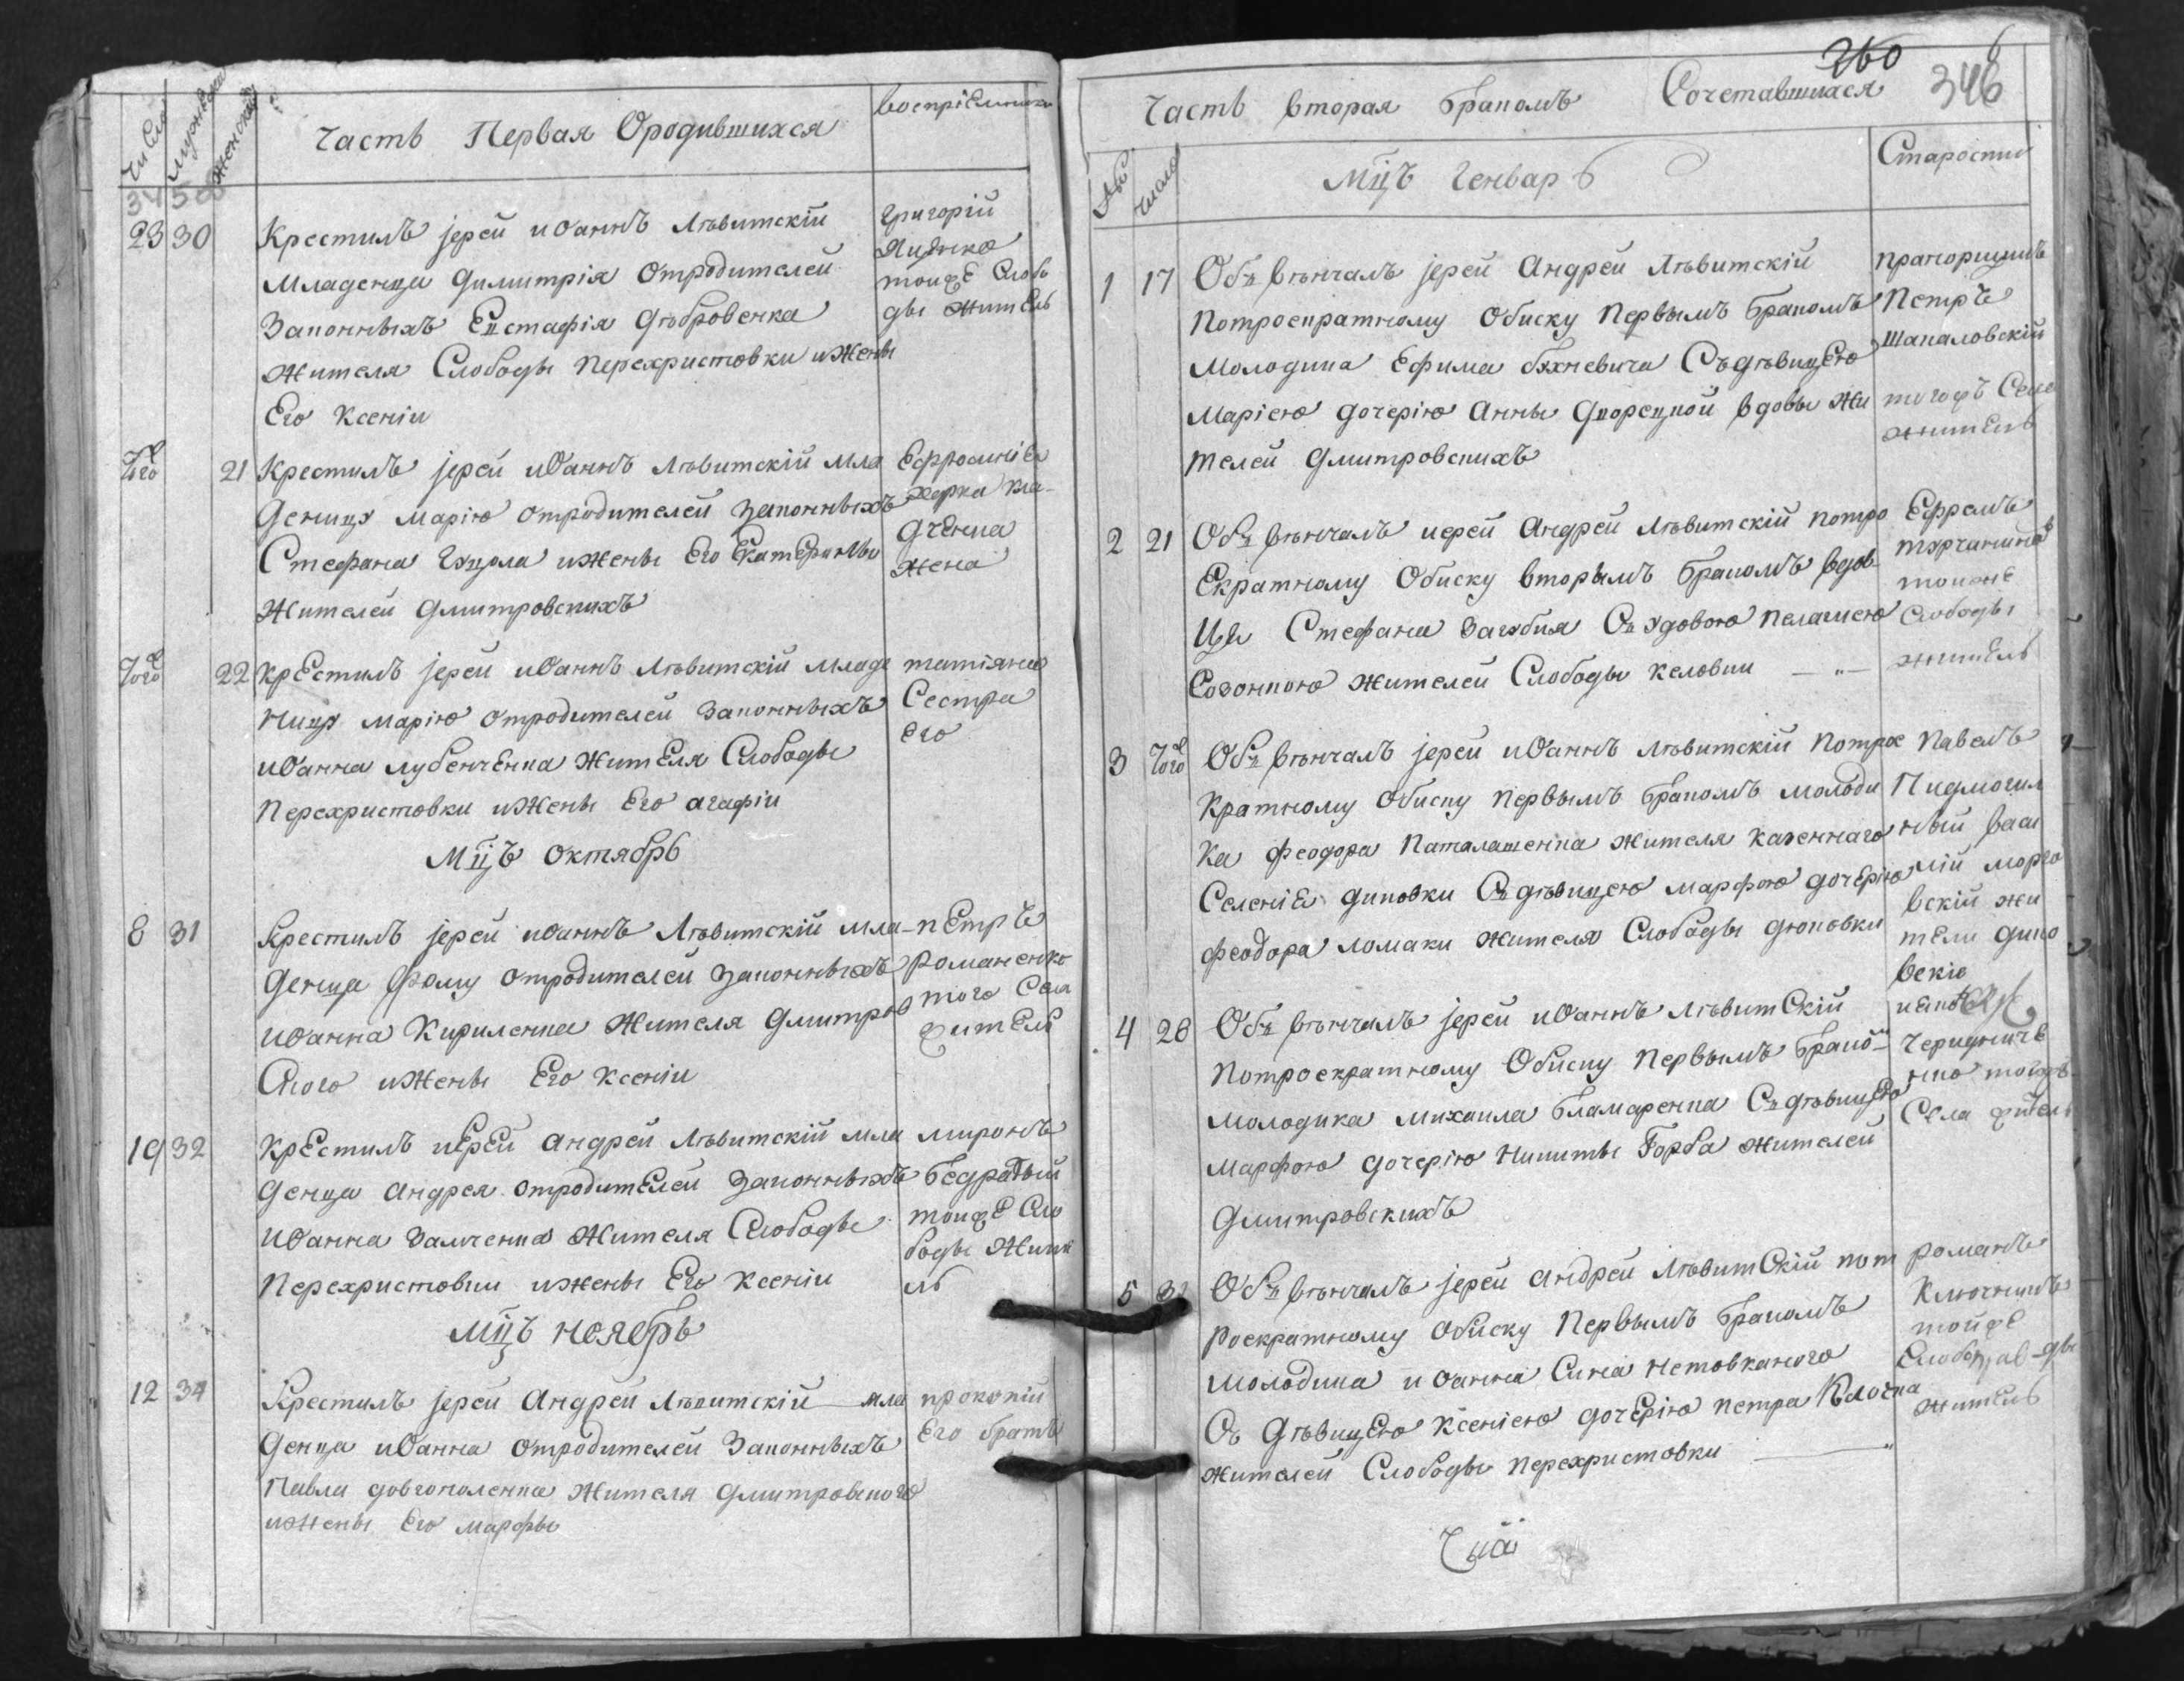 Число
мужеска
женска
Часть Первая Ородившихся
восприемники
23 30
Крестилъ іерей иѡаннъ Лѣвитскій
Младенца Димитрія отродителей
Законныхъ Еvстафія Дѣбровенка
жителя Слободы Перехристовки иЖены
Его Ксеніи
григорій
тоидЕ Слобо
ды житель
Того 21
Крестилъ іерей иѡаннъ Лѣвитскій мла
Деницу Марію отродителей законныхъ
Стефана иЖены Его Екатерины
Жителей Дмитровскихъ
Ефросинія
жена
Того 22
Крестилъ іерей иѡаннъ Лѣвитскій младе
ницу марію отродителей законныхъ
иѡанна лубенченка жителя Слободы
Перехристовки иЖены Его агафіи
татіяна
Сестра
Его
Мцъ октябрь
8 31
Крестилъ іерей иѡаннъ Лѣвитскій мла-
денца Фому отродителей законныхъ
иѡанна Кириленка Жителя Дмитров
Скаго иЖены Его Ксеніи
пЕтръ
романенко
того Села
житель
19 32
Крестилъ иЕрей андрей Лѣвитскій мла
денца андрея отродителей законныхъ
иѡанна Жителя Слободы
Перехристовки иЖены Его Ксеніи
миронъ
Бедратый
тоидЕ Сло
боды Жите
ль
Мцъ ноябрь
12 34
Крестилъ іерей Андрей Лѣвитскій мла
денца иѡанна отродителей Законныхъ
Павла довгополенка жителя дмитровского
иЖены Его марфы
прокопій
Его братъ
260
6
346
Часть вторая бракомъ Сочетавшихся
число
Мцъ Генварь
Старости
1 17
Объ вѣнчалъ іерей Андрей Лѣвитскій
Потроекратному обиску Первымъ бракомъ
Молодика Ефима Съ дѣвицЕю
Маріею дочерію Анны Дворецкой вдовы Жи
телей Дмитровскихъ
прапорщикъ
Петръ
Шапаловскій
тогожъ Села
житель
2 21
Объ вѣнчалъ иерей Андрей Лѣвитскій потро
Екратному обиску вторымъ бракомъ вдов
ца Стефана Загубія Съ удовою Пелагіею
Созонкою жителей Слободы Келовки
Ефремъ
турчанинъ
тоиже
Слободы
житель
3 Того
Объ вѣнчалъ іерей иѡаннъ Лѣвитскій потрое
Кратному обиску Первымъ бракомъ молоди
Ка феодора Паталашенка жителя казеннаго
Селенія диповки Съ дѣвицею марфою дочерію
феодора ломаки жителя Слободы дюповки
Павелъ
Пидмогил
ный васи
лій морго
вскій жи
тели дипо
вскіе
4 28
Объ вѣнчалъ іерей иѡаннъ ЛѣвитСкій
Потроекратному обиску Первымъ бракомъ
молодика михаила Бламаренка Съ дѣвицЕю
марфою дочерію Никиты Горба жителей
Дмитровскихъ
Чередниче
нко тоидѣ
Села житель
5 31
Объ вѣнчалъ іерей андрей ЛѣвитСкій пот
роекратному обиску Первымъ бракомъ
молодика иѡанна Сина нетовканого
Съ дѣвицЕю Ксеніею дочЕрію петра Клочка
жителей Слободы Перехристовки
романъ
Ключникъ
тойдЕ
Слободы
житель